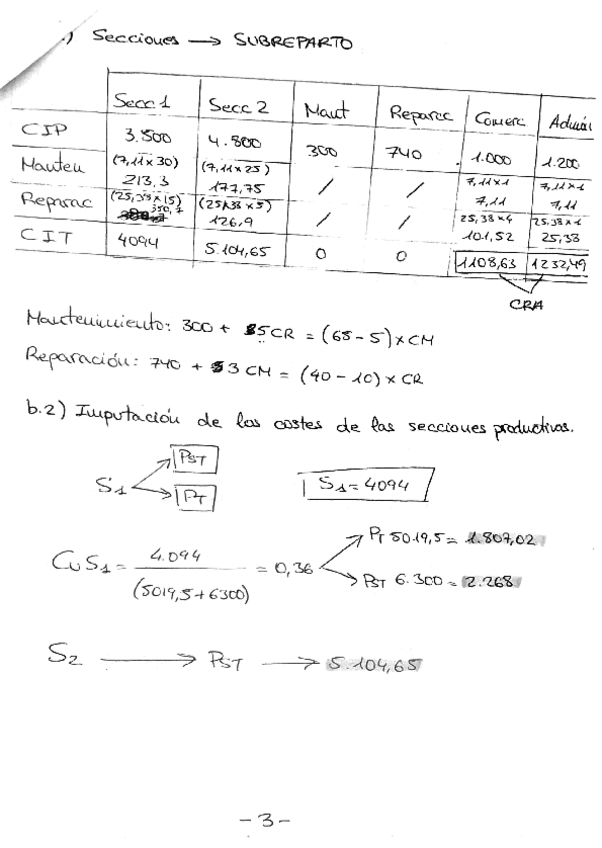 .) Secciones → SUBREPARTO
Secc 1 Secc 2 Maut Reparac Comerc Admón
CIP 3.500 4.800 300 740 1.000 1.200
Manten (7,11x30) 213,3 (7,11x25) 177,75 / / 7,11x1 7,11 7,11x1 7,11
Reparac (25,38x15) 380,7 (25,38x5) 126,9 / / 25,38x4 101,52 25,38x1 25,38
CIT 4094 5.104,65 0 0 1108,63 1232,49
CRA
Mantenimiento: 300 + 5CR = (65-5)xCM
Reparación: 740 + 3CM = (40-10)xCR
b.2) Imputación de los costes de las secciones productivas.
PST
S1
PT
S1=4094
CuS1 = 4.094 / (5019,5+6300) = 0,36
PT 5019,5 = 1.807,02
PST 6.300 = 2.268
S2 → PST → 5.104,65
-3-